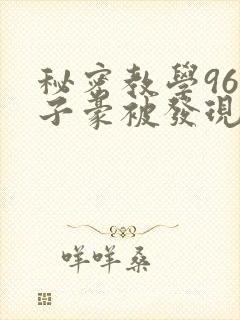 秘密教學96
子豪被發現
咩咩桑